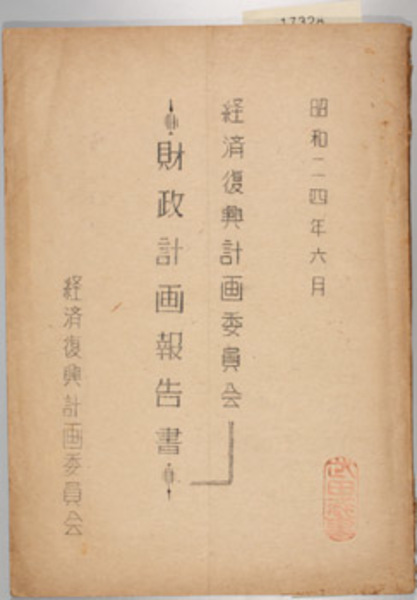 昭和二四年六月
経済復興計画委員会
財政計画報告書
経済復興計画委員会